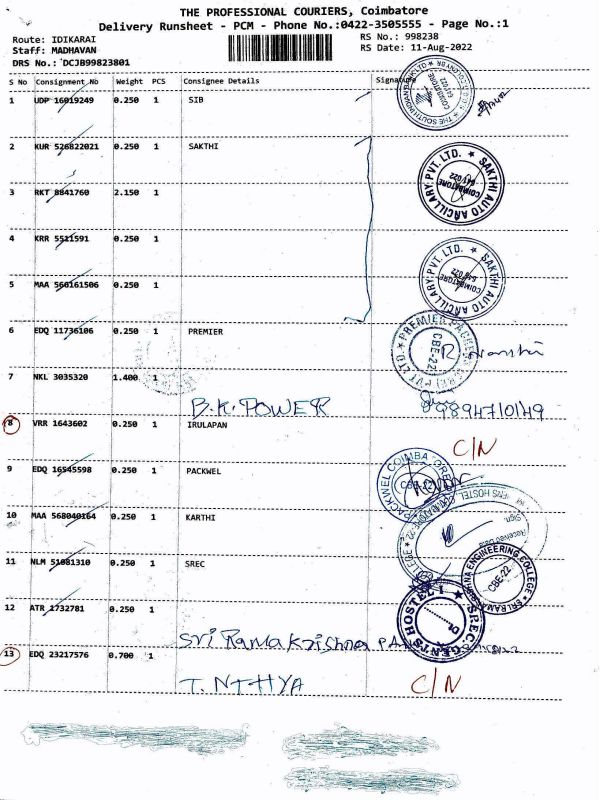 THE PROFESSIONAL COURIERS, Coimbatore
Delivery Runsheet - PCM - Phone No.:0422-3505555 - Page No.:1
Route: IDIKARAI
RS No.: 998238
Staff: MADHAVAN
RS Date: 11-Aug-2022
DRS No.: DCJB99823801
S No Consignment No Weight PCS Consignee Details Signature
1 UDP 16019249 0.250 1 SIB
THE SOUTH INDIAN BANK LTD
COIMBATORE
641 022
2 KUR 526822021 0.250 1 SAKTHI
SAKTHI AUTO ARCILLARY PVT. LTD.
COIMBATORE
641 022
3 RKT 8841760 2.150 1
4 KRR 5511591 0.250 1
SAKTHI AUTO ARCILLARY PVT. LTD.
COIMBATORE
5 MAA 566161506 0.250 1
6 EDQ 11736106 0.250 1 PREMIER
CBE-22
7 NKL 3035320 1.400 1
B.K. POWER
8 VRR 1643602 0.250 1 IRULAPAN
C/N
9 EDQ 16545598 0.250 1 PACKWEL
CBE-22
10 MAA 568040164 0.250 1 KARTHI
11 NLM 51081310 0.250 1 SREC
SRI RAMAKRISHNA ENGINEERING COLLEGE
CBE-22
12 ATR 1732781 0.250 1
Sri Ramakrishna
13 EDQ 23217576 0.700 1
T. NITHYA
C/N